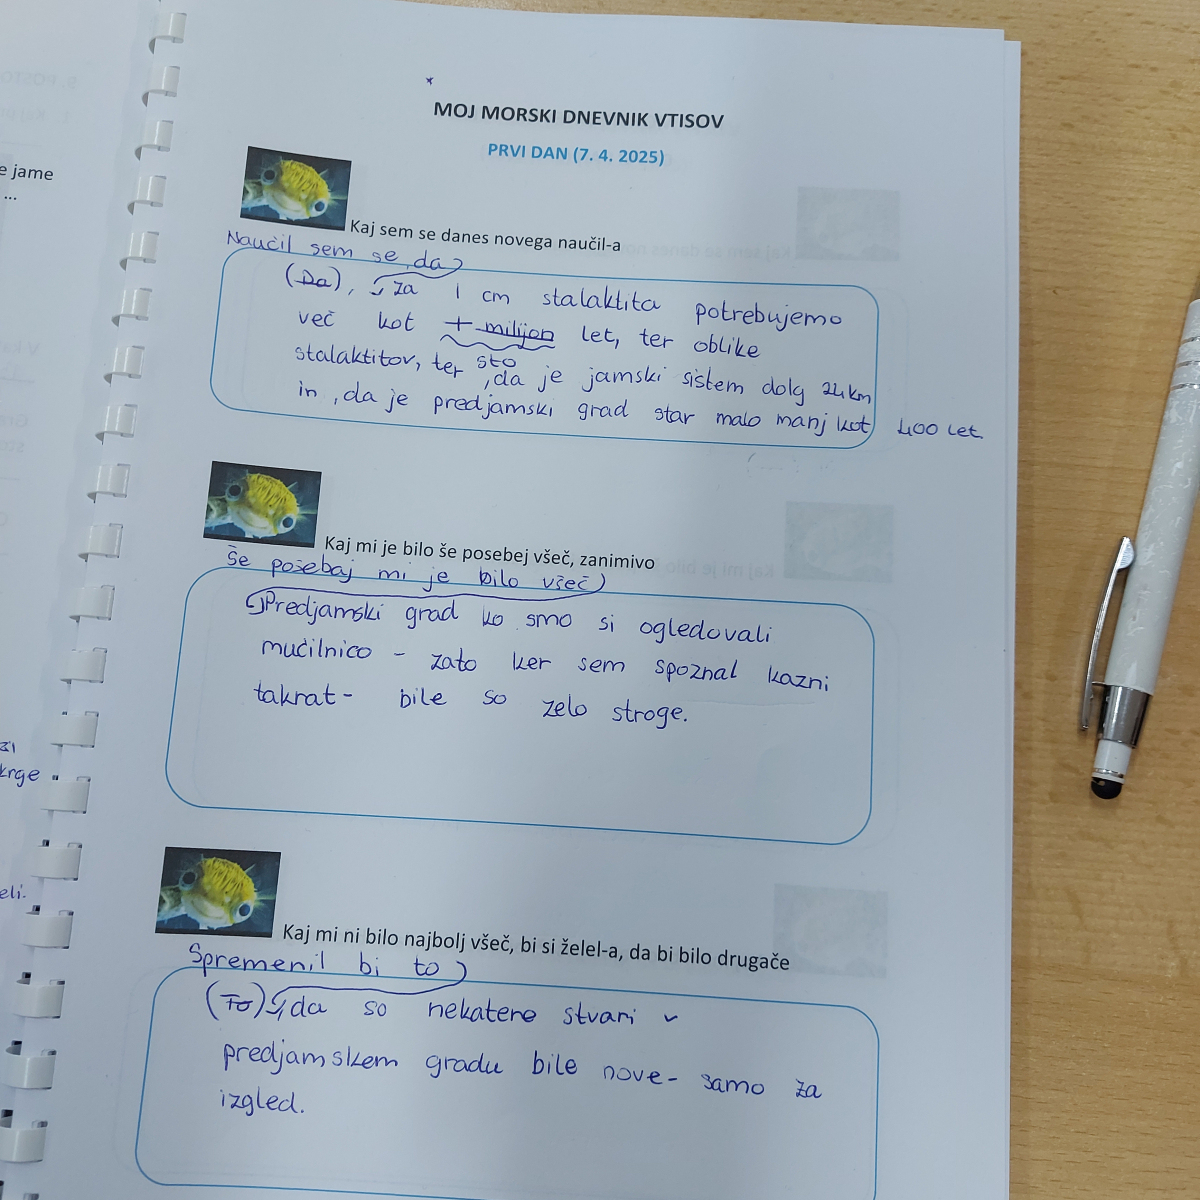 e jame
...
krge
eli.
MOJ MORSKI DNEVNIK VTISOV
PRVI DAN (7. 4. 2025)
Kaj sem se danes novega naučil-a
Naučil sem se, da
(Da), za 1 cm stalaktita potrebujemo
več kot + milijon let, ter oblike
stalaktitov, ter sto, da je jamski sistem dolg 24 km
in, da je predjamski grad star malo manj kot 400 let
Kaj mi je bilo še posebej všeč, zanimivo
Še posebaj mi je bilo všeč
Predjamski grad ko smo si ogledovali
mučilnico - zato ker sem spoznal kazni
takrat - bile so zelo stroge.
Kaj mi ni bilo najbolj všeč, bi si želel-a, da bi bilo drugače
Spremenil bi to
(To), da so nekatere stvari v
predjamskem gradu bile nove - samo za
izgled.